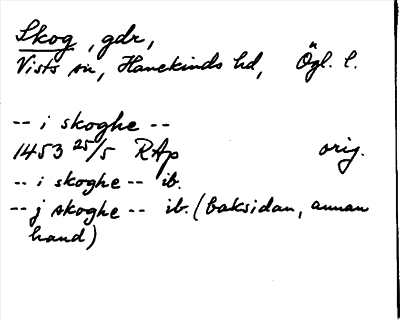 Skog, gdr,
Vists sn, Hanekinds hd, Ögl. l.
-- i skoghe --
1453 25/5 RAp orig.
-- i skoghe -- ib.
-- j skoghe -- ib. (baksidan, annan
hand)